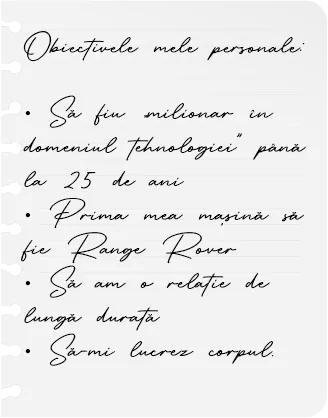 Obiectivele mele personale:
• Să fiu „milionar în
domeniul tehnologiei" până
la 25 de ani
• Prima mea mașină să
fie Range Rover
• Să am o relație de
lungă durată
• Să-mi lucrez corpul.